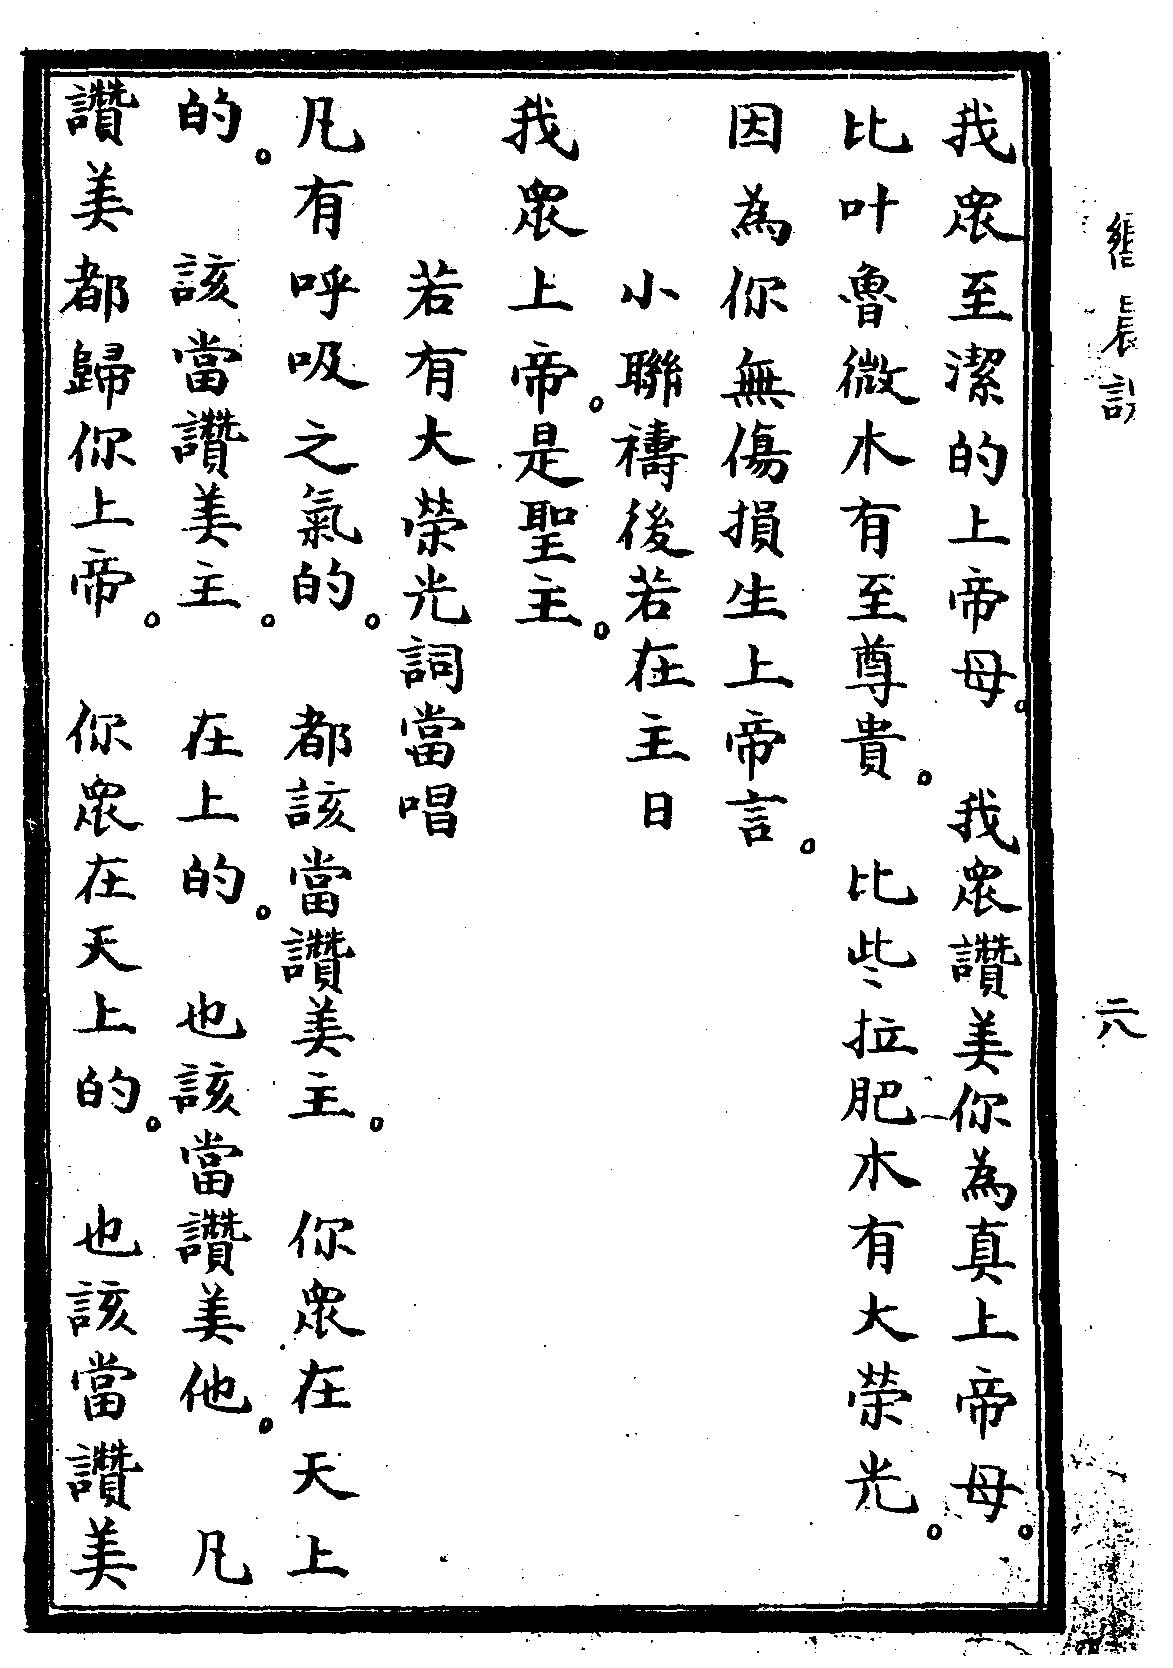 我眾至潔的上帝母。 我眾讚美你為真上帝母。
比叶魯微木有至尊貴。 比些拉肥木有大榮光。
因為你無傷損生上帝言。
小聯禱後若在主日
我眾上帝。是聖主。
若有大榮光詞當唱
凡有呼吸之氣的。 都該當讚美主。 你眾在天上
的。 該當讚美主。 在上的。 也該當讚美他。 凡
讚美都歸你上帝。 你眾在天上的。 也該當讚美